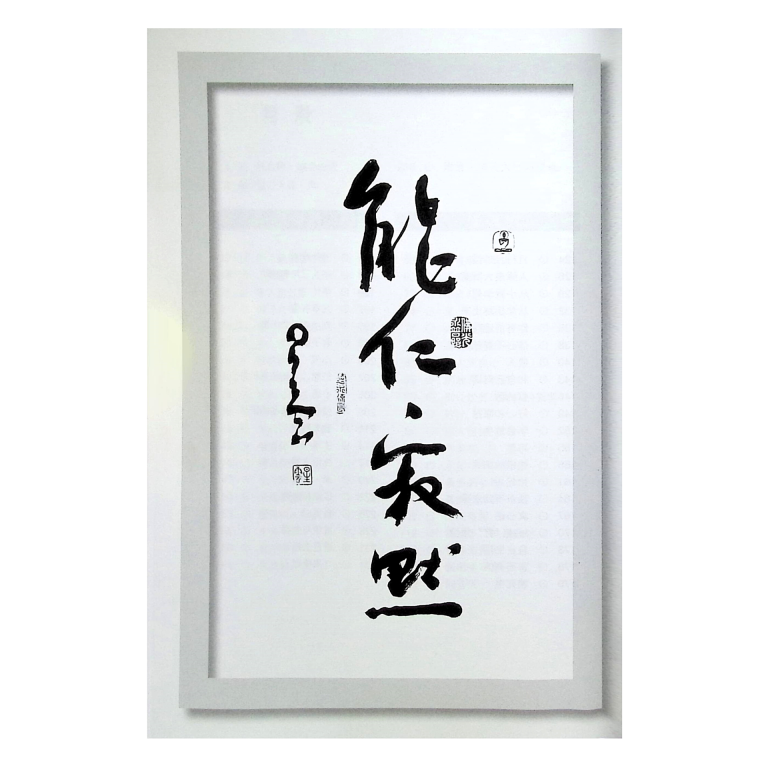 能仁寂默
星雲